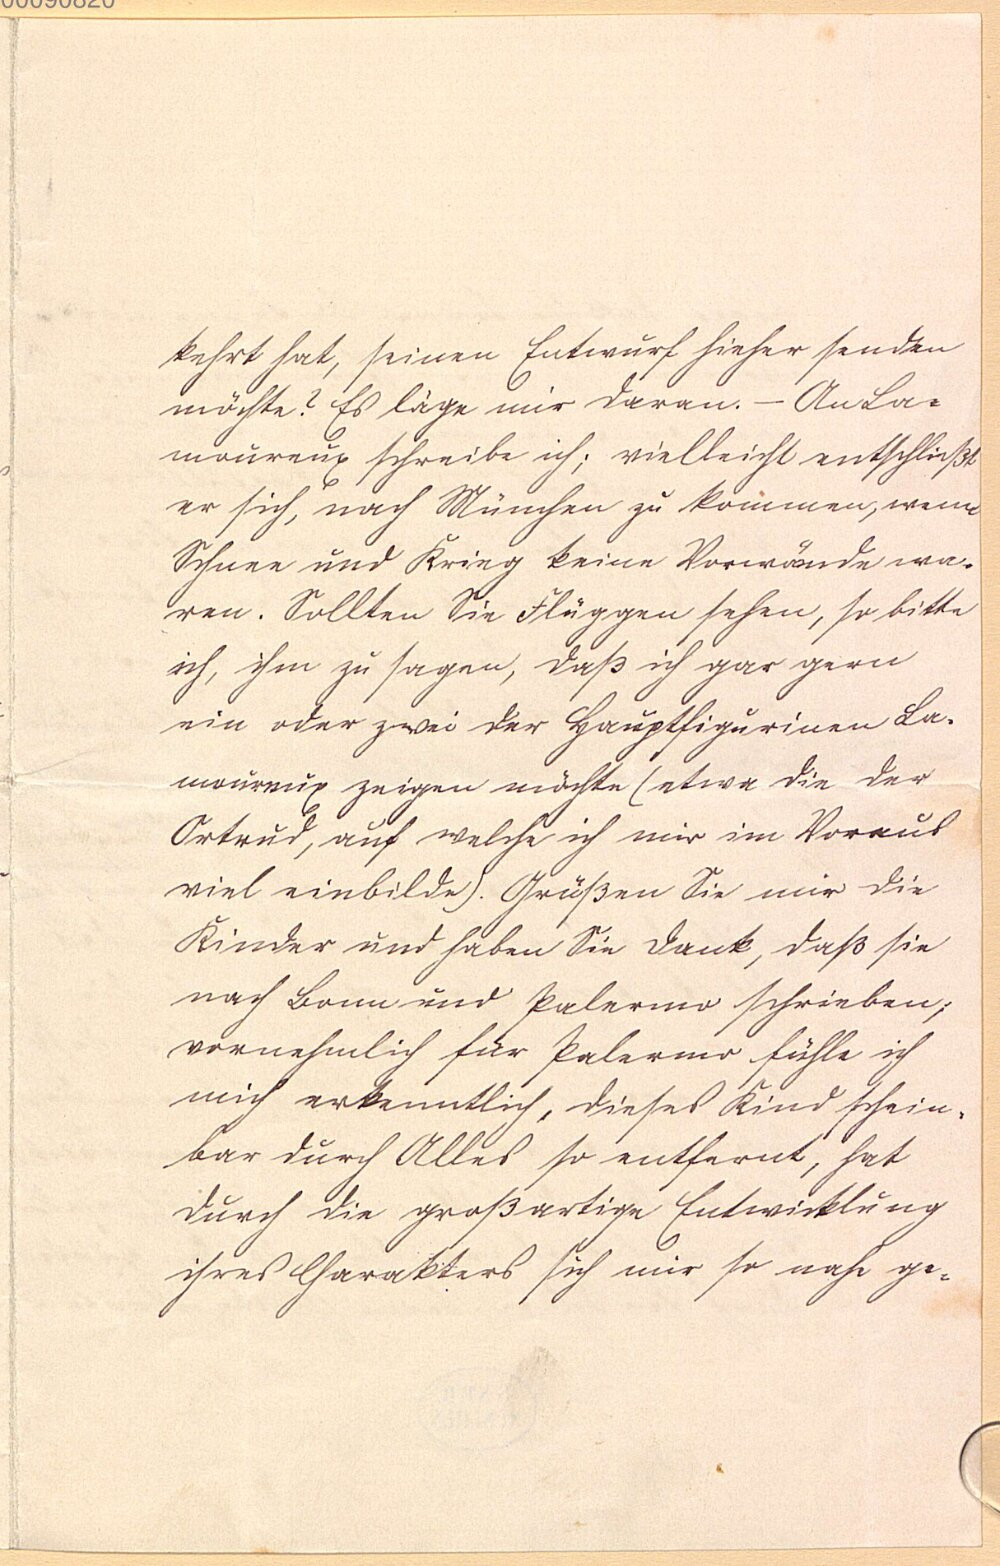 00090820
kehrt hat, seinen Entwurf hieher senden
möchte? Es läge mir daran. – An La-
moureux schreibe ich; vielleicht entschließt
er sich, nach München zu kommen, wenn
Schnee und Krieg keine Vorwände wa-
ren. Sollten Sie Flüggen sehen, so bitte
ich, ihm zu sagen, daß ich gar gern
ein oder zwei der Hauptfigurinen La-
moureux zeigen möchte (etwa die der
Ortrud, auf welche ich mir im Voraus
viel einbilde). Grüßen Sie mir die
Kinder und haben Sie Dank, daß sie
nach Bonn und Palermo schrieben;
vornehmlich für Palermo fühle ich
mich erkenntlich, dieses Kind schein-
bar durch Alles so entfernt, hat
durch die großartige Entwicklung
ihres Charakters sich mir so nahe ge-